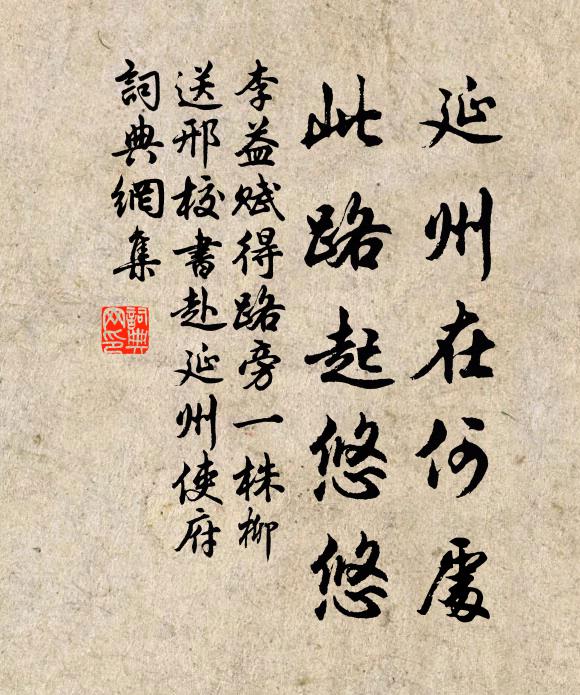 延州在何處
此路起悠悠
李益賦得路旁一株柳
送邢校書赴延州使府
詞典網集
詞典网印